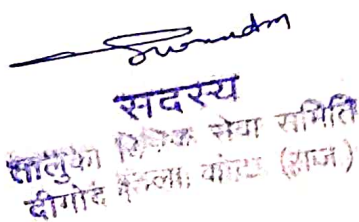 सदस्य
तालुका विधिक सेवा समिति
दीगोद (राज.)